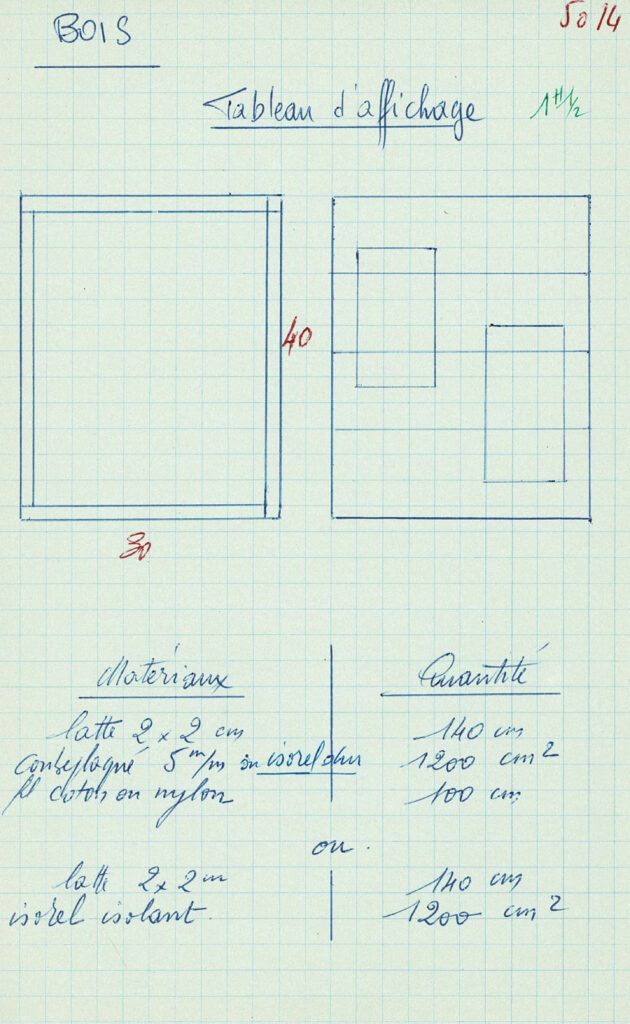 BOIS
50/4
Tableau d'affichage
1H1/2
40
30
Matériaux Quantité
latte 2 x 2 cm 140 cm
contreplaqué 5 m/m ou isorel dur 1200 cm2
fil coton ou nylon 100 cm
ou.
latte 2 x 2 cm 140 cm
isorel isolant. 1200 cm2